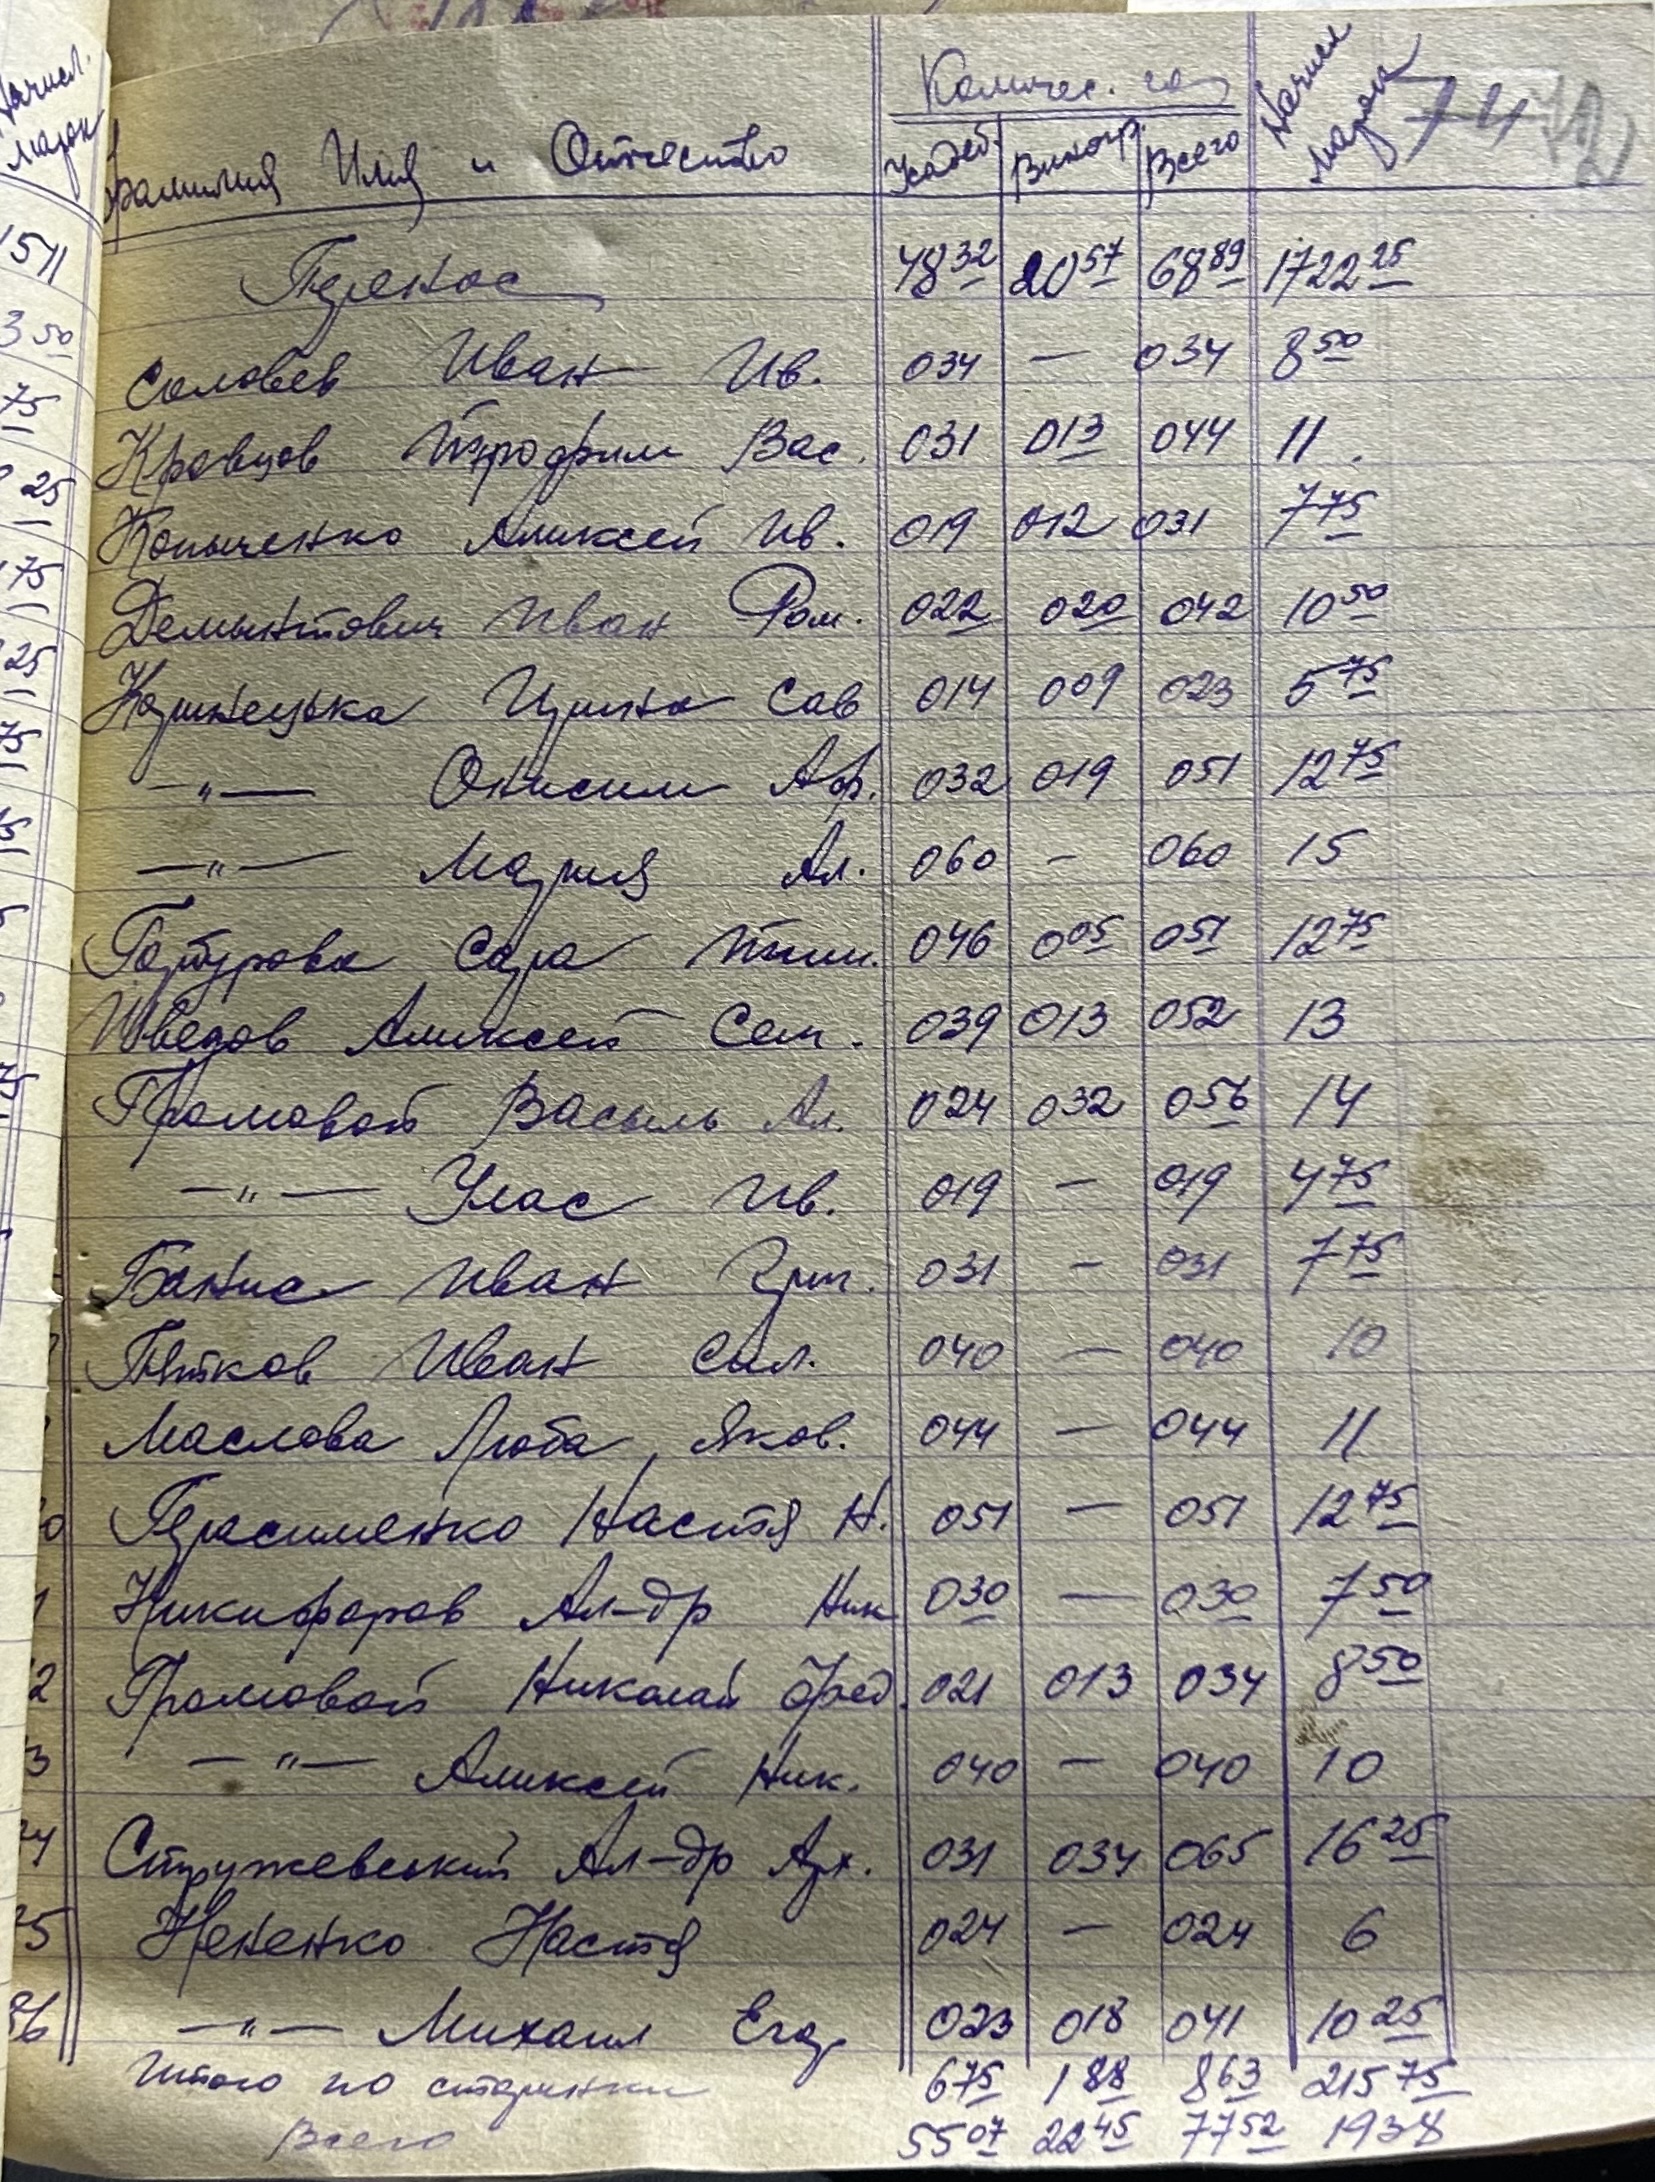 Начисл. марок
Количес. га
Начисл марок 74 72
Фамилия Имя и Отчество Усадеб. Виногр. Всего
1511 Перенос 48 32 20 57 68 89 1722 25
3 50 Соловев Иван Ив. 034 — 034 8 50
75 Кравцов Трофим Вас. 031 013 044 11.
25 Копыченко Аликсей Ив. 019 012 031 7 75
75 Демынтович Иван Ром. 022 020 042 10 50
25 Каринецька Ирина Сав 014 009 023 5 75
75 —„— Онисим Аф. 032 019 051 12 75
—„— Мария Ал. 060 - 060 15
Сара Тим. 046 005 051 12 75
Шведов Аликсей Сем. 039 013 052 13
Громовой Васыль Ал. 024 032 056 14
—„— Улас Ив. 019 - 019 4 75
Банис Иван Григ. 031 - 031 7 75
Пятков Иван Сил. 040 — 040 10
Маслова Люба Яков. 044 — 044 11
Герасименко Настя Н. 051 — 051 12 75
Никифоров Ал-др Ник 030 — 030 7 50
2 Громовой Николай Фед. 021 013 034 8 50
3 —„— Аликсей Ник. 040 - 040 10
24 Стружевський Ал-др Арх. 031 034 065 16 25
25 Нененко Настя 024 - 024 6
36 —„— Михаил Егор. 023 018 041 10 25
Итого по старинки 675 188 863 215 75
Всего 55 07 22 45 77 52 1938